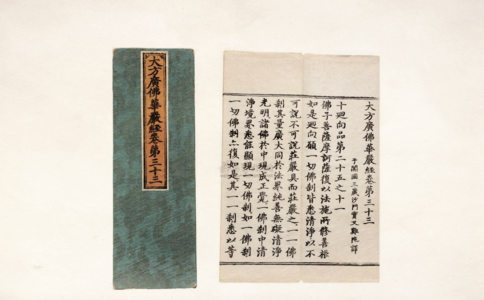 大方廣佛華嚴經卷第三十三
大方廣佛華嚴經卷第三十三
于闐國三藏沙門實叉難陀譯
十廻向品第二十五之十一
佛子菩薩摩訶薩復以法施所修善根
如是廻向願一切佛剎皆悉清淨以不
可說不可說莊嚴具而莊嚴之一一佛
剎其量廣大同於法界純善無礙清淨
光明諸佛於中現成正覺一佛剎中清
淨境界悉能顯現一切佛剎如一佛剎
一切佛剎亦復如是其一一剎悉以等